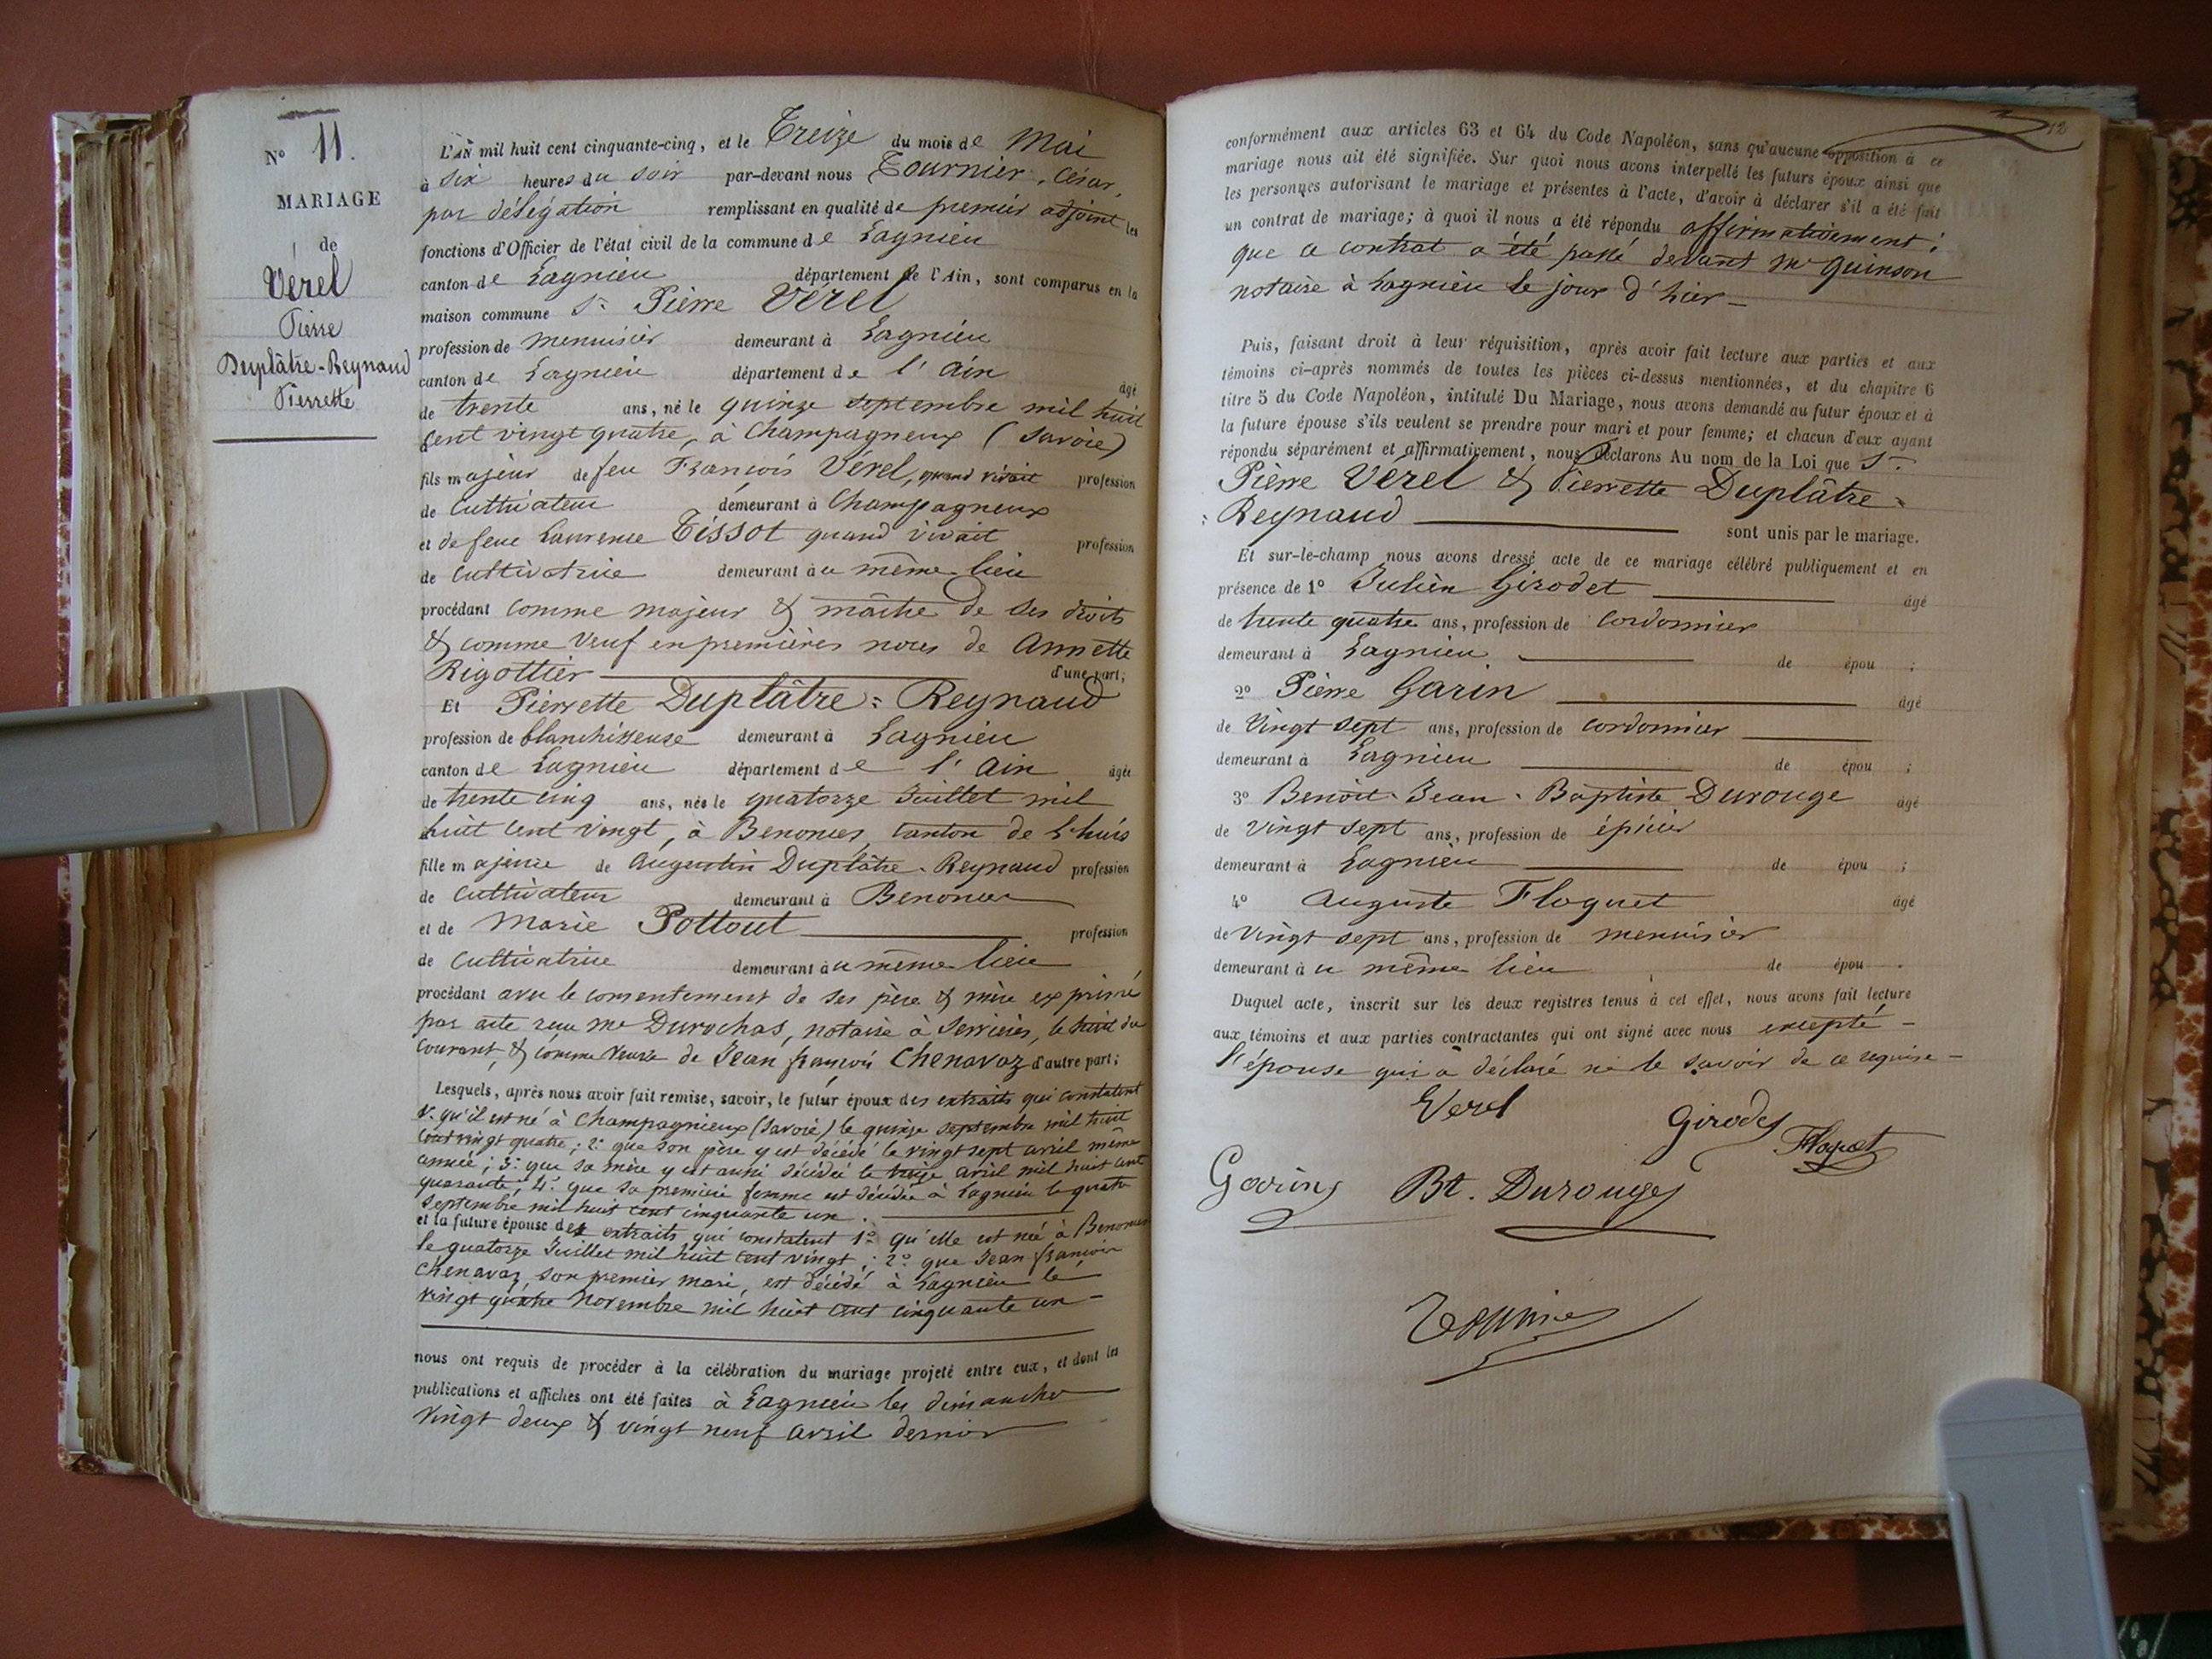 N° 11.
MARIAGE
de
Vérel
Pierre
Duplâtre-Reynaud
Pierrette
L'AN mil huit cent cinquante-cinq, et le Treize du mois de Mai
à six heures du soir par-devant nous Tournier, César,
par délégation remplissant en qualité de premier adjoint les
fonctions d'Officier de l'état civil de la commune de Lagnieu
canton de Lagnieu département de l'Ain, sont comparus en la
maison commune Sr. Pierre Vérel
profession de menuisier demeurant à Lagnieu
canton de Lagnieu département de l'Ain âgé
de trente ans, né le quinze septembre mil huit
cent vingt quatre, à Champagneux (Savoie)
fils majeur de feu François Vérel, quand vivait profession
de Cultivateur demeurant à Champagneux
et de feue Laurence Tissot quand vivait profession
de Cultivatrice demeurant au même lieu
procédant comme majeur & maître de ses droits
& comme Veuf en premières noces de Annette
Rigottier d'une part;
Et Pierrette Duplâtre=Reynaud
profession de blanchisseuse demeurant à Lagnieu
canton de Lagnieu département de l'Ain âgée
de trente cinq ans, née le quatorze Juillet mil
huit cent vingt, à Benonces, canton de L'huis
fille majeure de Augustin Duplâtre-Reynaud profession
de Cultivateur demeurant à Benonces
et de Marie Pottout profession
de Cultivatrice demeurant au même lieu
procédant avec le consentement de ses père & mère exprimé
par acte reçu Me Durochas, notaire à Serrières, le huit du
courant, & comme veuve de Jean françois Chenavaz d'autre part;
Lesquels, après nous avoir fait remise, savoir, le futur époux des extraits qui constatent
1° qu'il est né à Champagnieux (Savoie) le quinze septembre mil huit
cent vingt quatre; 2° que son père y est décédé le vingt sept avril même
année; 3° que sa mère y est aussi décédée le treize avril mil huit cent
quarante; 4° que sa première femme est décédée à Lagnieu le quatre
septembre mil huit cent cinquante un.
et la future épouse des extraits qui constatent 1° qu'elle est née à Benonces
le quatorze Juillet mil huit cent vingt; 2° que Jean françois
Chenavaz, son premier mari, est décédé à Lagnieu le
vingt quatre Novembre mil huit cent cinquante un
nous ont requis de procéder à la célébration du mariage projeté entre eux, et dont les
publications et affiches ont été faites à Lagnieu les dimanches
vingt deux & vingt neuf avril dernier
12
conformément aux articles 63 et 64 du Code Napoléon, sans qu'aucune opposition à ce
mariage nous ait été signifiée. Sur quoi nous avons interpellé les futurs époux ainsi que
les personnes autorisant le mariage et présentes à l'acte, d'avoir à déclarer s'il a été fait
un contrat de mariage; à quoi il nous a été répondu affirmativement:
que ce contrat a été passé devant Me Quinson
notaire à Lagnieu le jour d'hier
Puis, faisant droit à leur réquisition, après avoir fait lecture aux parties et aux
témoins ci-après nommés de toutes les pièces ci-dessus mentionnées, et du chapitre 6
titre 5 du Code Napoléon, intitulé Du Mariage, nous avons demandé au futur époux et à
la future épouse s'ils veulent se prendre pour mari et pour femme; et chacun d'eux ayant
répondu séparément et affirmativement, nous déclarons Au nom de la Loi que Sr.
Pierre Vérel & Pierrette Duplâtre=
=Reynaud sont unis par le mariage.
Et sur-le-champ nous avons dressé acte de ce mariage célébré publiquement et en
présence de 1° Julien Girodet âgé
de trente quatre ans, profession de Cordonnier
demeurant à Lagnieu de épou ;
2° Pierre Garin âgé
de Vingt sept ans, profession de cordonnier
demeurant à Lagnieu de épou ;
3° Benoît-Jean-Baptiste Durouge âgé
de vingt sept ans, profession de épicier
demeurant à Lagnieu de épou ;
4° Auguste Floquet âgé
de Vingt sept ans, profession de menuisier
demeurant au même lieu de épou .
Duquel acte, inscrit sur les deux registres tenus à cet effet, nous avons fait lecture
aux témoins et aux parties contractantes qui ont signé avec nous excepté
l'épouse qui a déclaré ne le savoir de ce requise
Verel
Girodet
Floquet
Garin
Bt. Durouge
Tournier